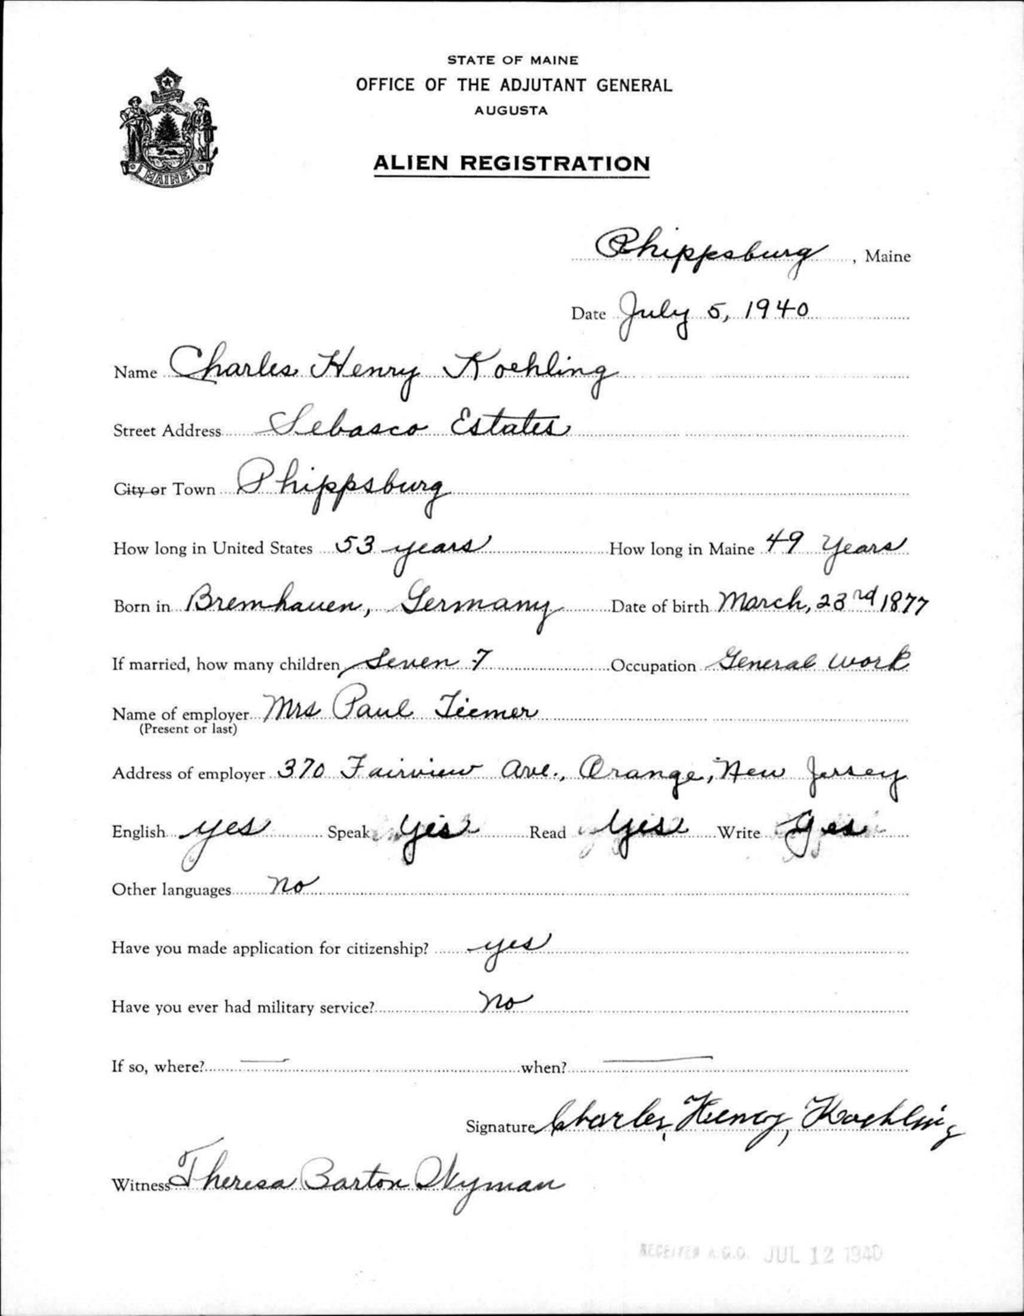 STATE OF MAINE
OFFICE OF THE ADJUTANT GENERAL
AUGUSTA
ALIEN REGISTRATION
MAINE
Phippsburg, Maine
Date July 5, 1940
Name Charles Henry Koehling
Street Address Sebasco Estates
City or Town Phippsburg
How long in United States 53 years How long in Maine 49 Years
Born in Bremhaven, Germany Date of birth March, 23rd 1877
If married, how many children Seven 7 Occupation General work
Name of employer Mrs Paul Tiemer
(Present or last)
Address of employer 370 Fairview Ave., Orange, New Jersey
English yes Speak yes Read yes Write yes
Other languages no
Have you made application for citizenship? yes
Have you ever had military service? no
If so, where? — when? —
Signature Charles, Henry, Koehling
Witness Theresa Barton Wyman
RECEIVED A.G.O. JUL 12 1940